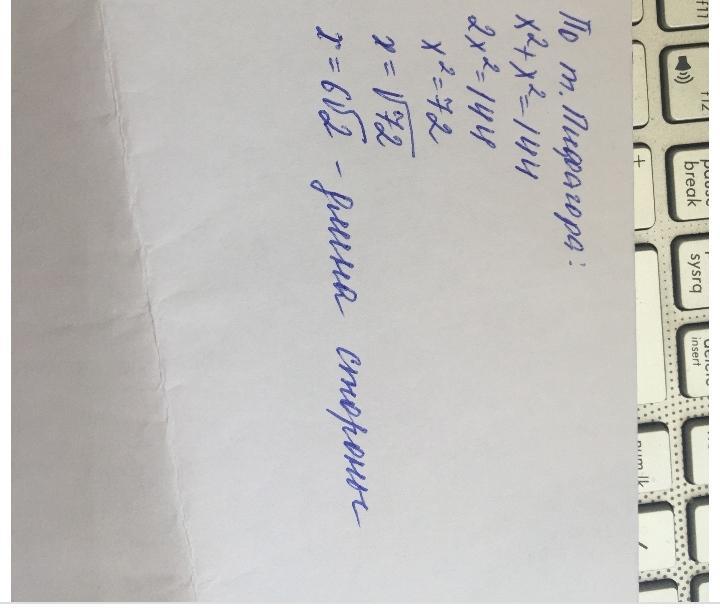 По т. Пифагора:
x² + x² = 144
2x² = 144
x² = 72
x = √72
x = 6√2 - длина стороны
f11
f12
pause
break
sysrq
delete
insert
num lk
+
/